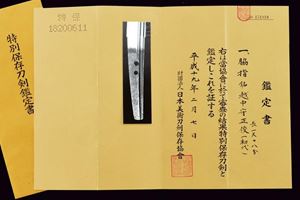 鑑定書
一、脇指 銘 越中守正俊(初代)
長一尺一寸八分
右は當協會に於て審査の結果特別保存刀剣と
鑑定しこれを証する
平成十九年二月七日
財団法人日本美術刀剣保存協會
特保
18200611
特別保存刀剣鑑定書